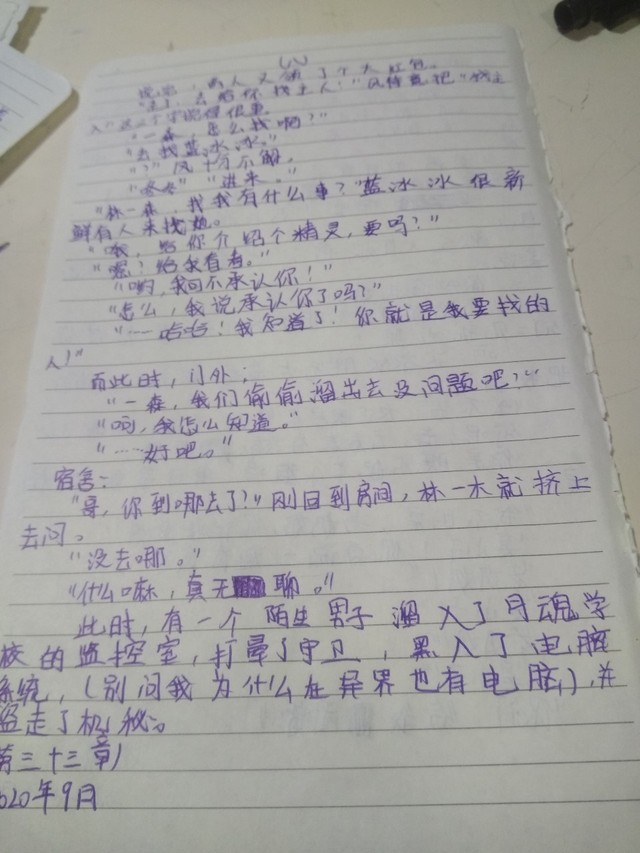 (八)
说完,两人又领了个大红包。
"走!去给你找主人!"风特意把"找主
人"这三个字咬得很重。
"一森,怎么找啊?"
"去找蓝冰冰。"
"?"风十分不解。
"咚咚" "进来。"
"林一森,找我有什么事?"蓝冰冰很新
鲜有人来找她。
"哦,给你介绍个精灵,要吗?"
"嗯?给我看看。"
"哟,我可不承认你!"
"怎么,我说承认你了吗?"
"……哈哈!我知道了!你就是我要找的
人!"
而此时,门外:
"一森,我们偷偷溜出去没问题吧?"
"呵,我怎么知道。"
"……好吧。"
宿舍:
"哥,你到哪去了?"刚回到房间,林一木就挤上
去问。
"没去哪。"
"什么嘛,真无聊。"
此时,有一个陌生男子溜入了月魂学
校的监控室,打晕了守卫,黑入了电脑
系统,(别问我为什么在异界也有电脑),并
盗走了机秘。
第三十三章)
2020年9月